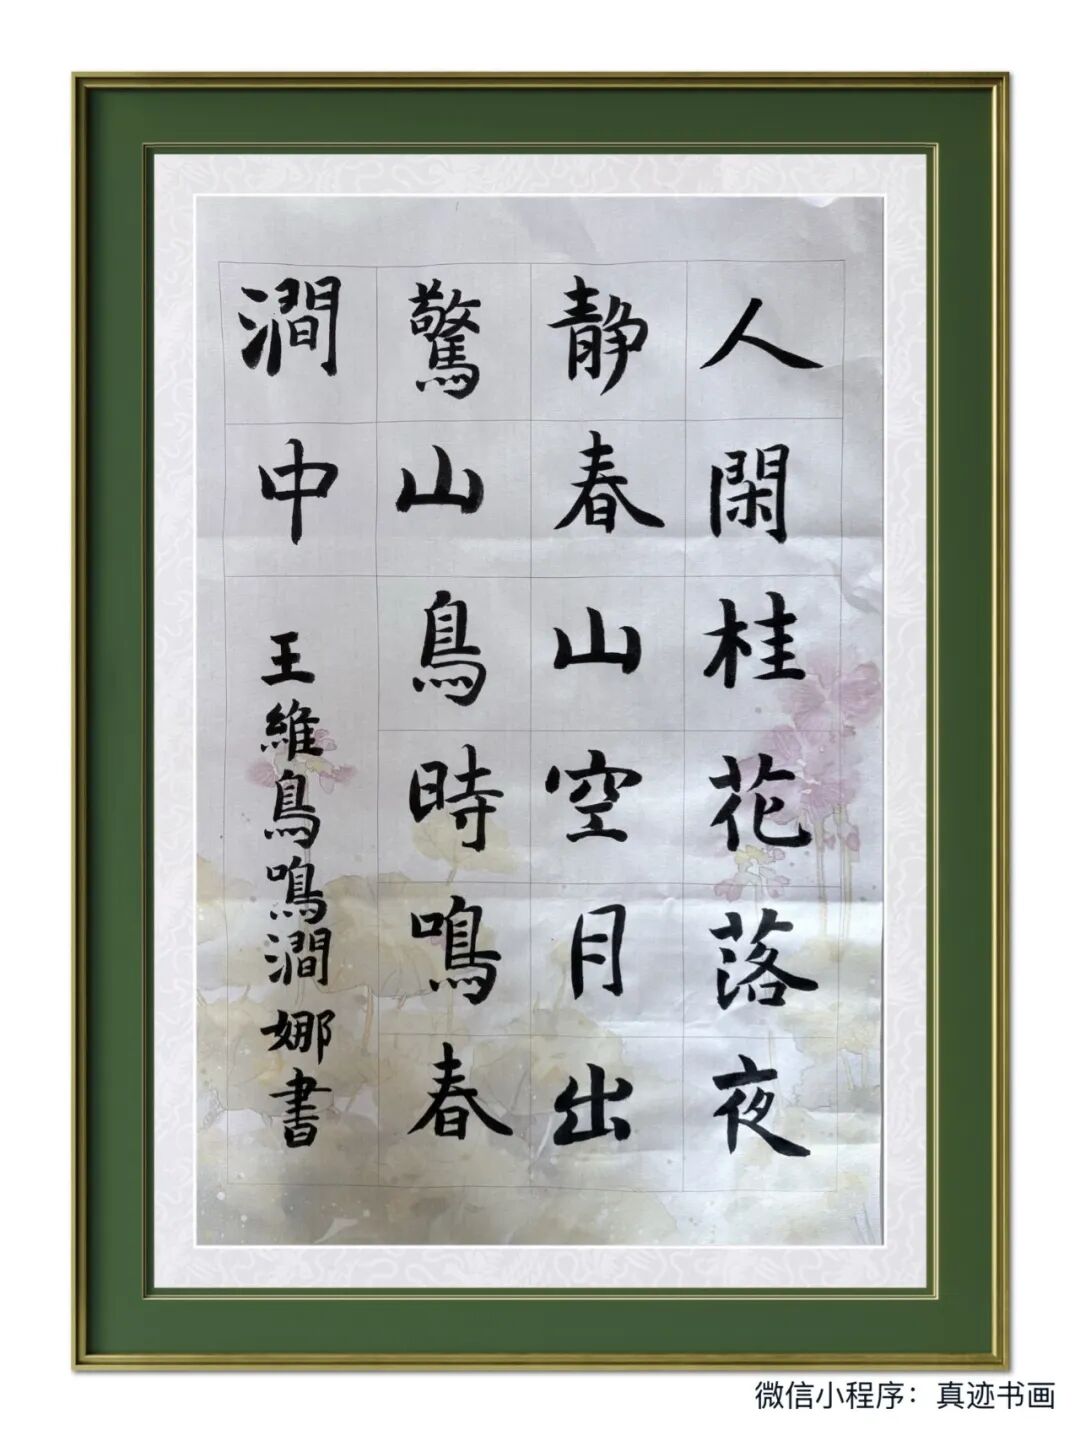 人閑桂花落夜
静春山空月出
驚山鳥時鳴春
澗中
王維鳥鳴澗娜書
微信小程序：真迹书画